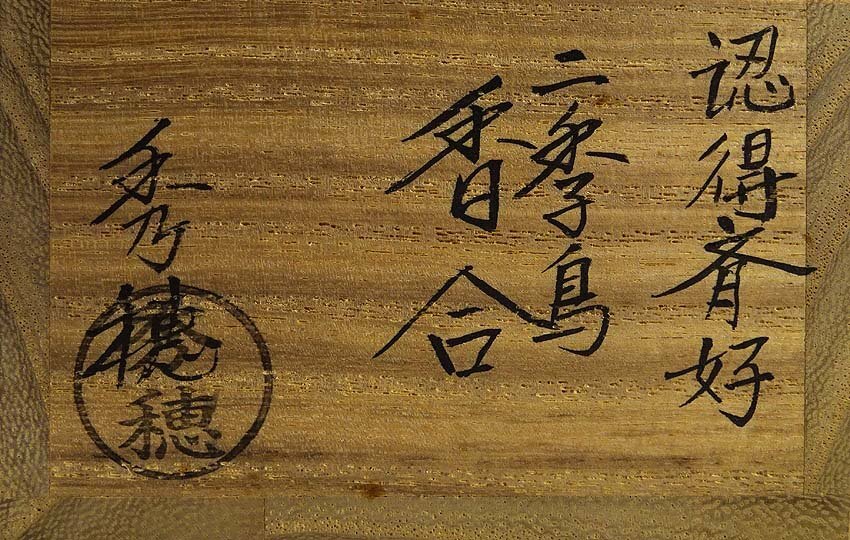 認得斎好
二季鳥
香合
秀穂
穂